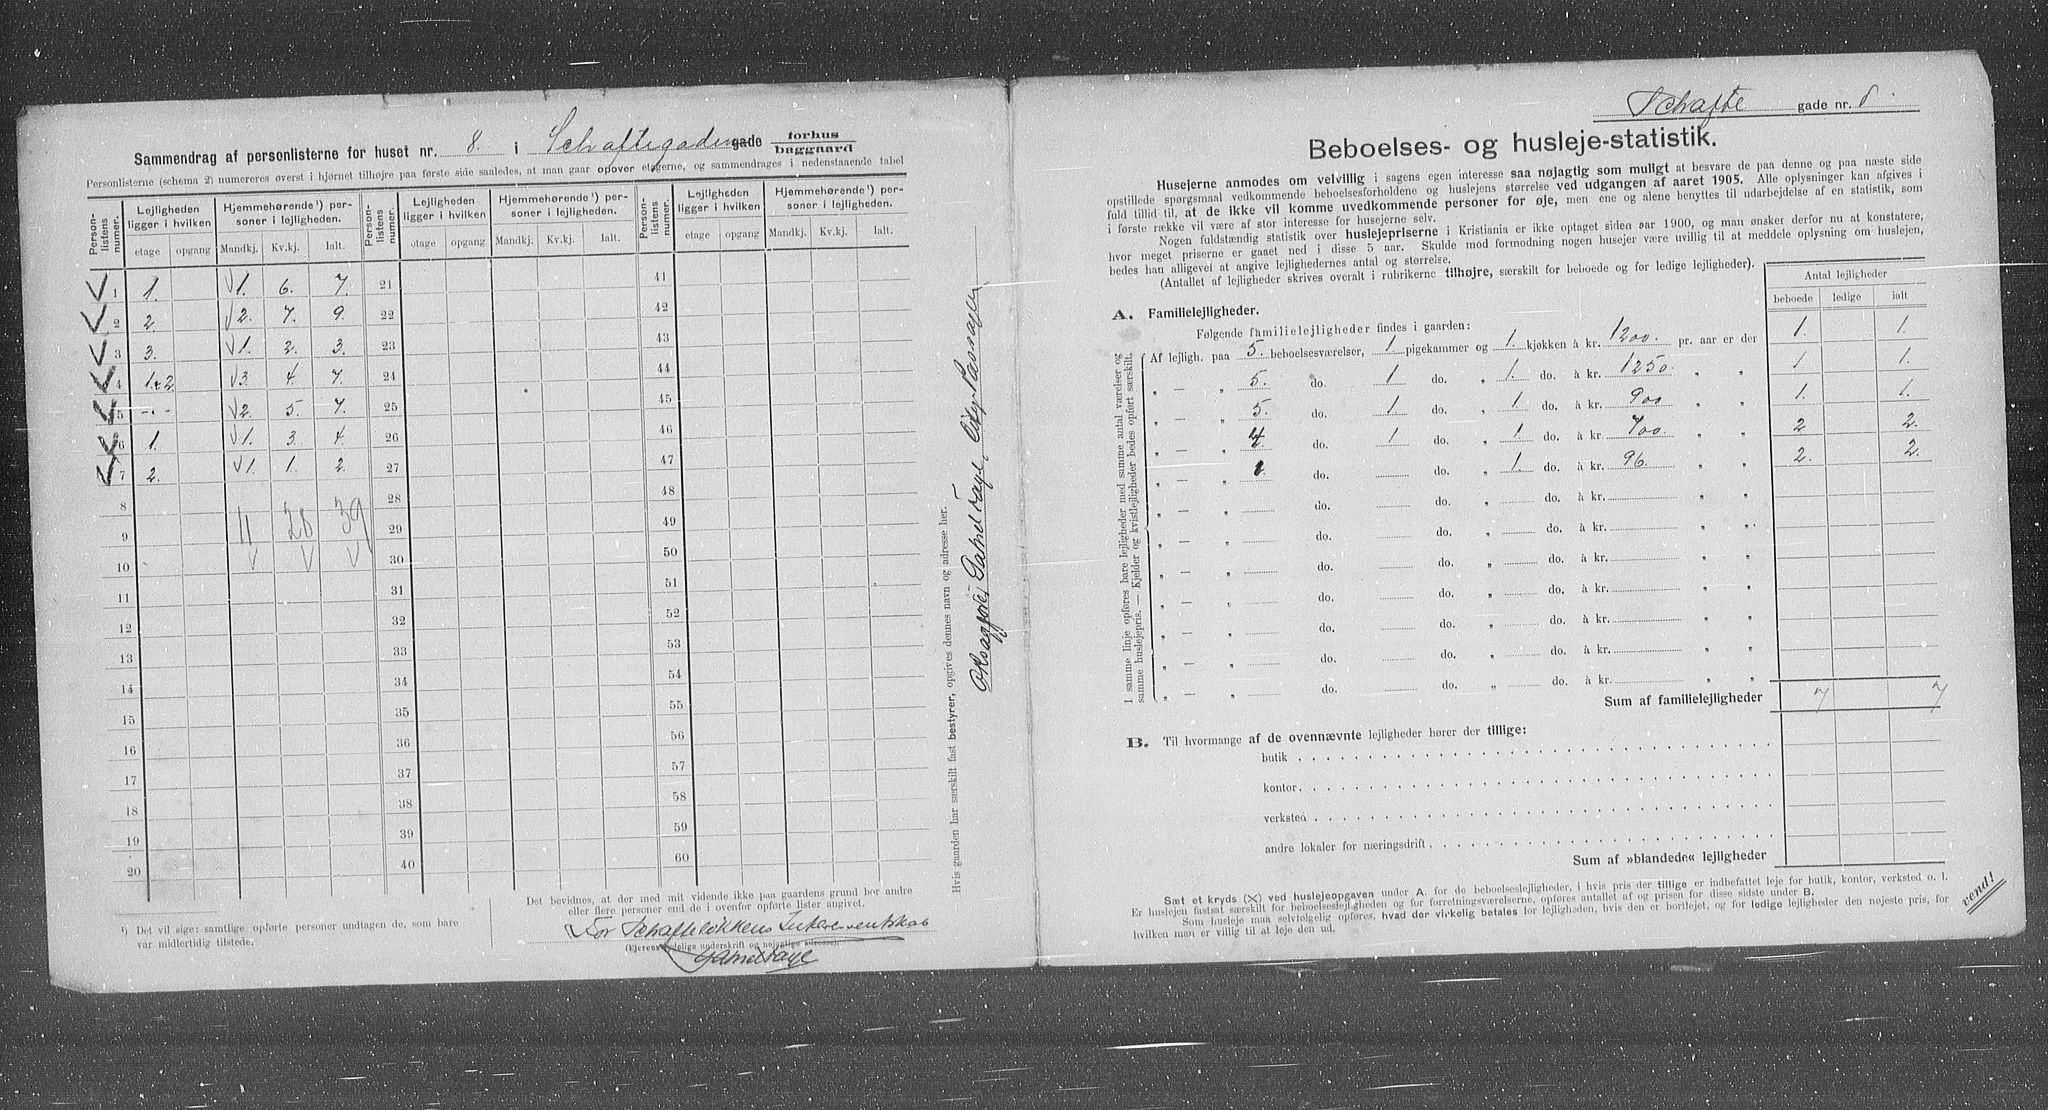 Sammendrag af personlisterne for huset nr. 8. i Schaftegaden gade forhus baggaard
Personlisterne (schema 2) numereres øverst i hjørnet tilhøjre paa første side saaledes, at man gaar opover etagerne, og sammendrages i nedenstaaende tabel
Person-listens numer. Lejligheden ligger i hvilken Hjemmehørende¹) personer i lejligheden. Person-listens numer. Lejligheden ligger i hvilken Hjemmehørende¹) personer i lejligheden. Person-listens numer. Lejligheden ligger i hvilken Hjemmehørende¹) personer i lejligheden.
etage opgang Mandkj. Kv.kj. Ialt. etage opgang Mandkj. Kv.kj. Ialt. etage opgang Mandkj. Kv.kj. Ialt.
1 1. 1. 6. 7. 21 41
2 2. 2. 7. 9. 22 42
3 3. 1. 2. 3. 23 43
4 1+2 3. 4. 7. 24 44
5 -"- 2. 5. 7. 25 45
6 1. 1. 3. 4. 26 46
7 2. 1. 1. 2. 27 47
8 28 48
9 11 28 39 29 49
10 30 50
11 31 51
12 32 52
13 33 53
14 34 54
15 35 55
16 36 56
17 37 57
18 38 58
19 39 59
20 40 60
¹) Det vil sige: samtlige opførte personer undtagen de, som bare
var midlertidig tilstede.
Det bevidnes, at der med mit vidende ikke paa gaardens grund bor andre
eller flere personer end de i ovenfor opførte lister angivet.
For Schafteløkkens Interessentskab
(Ejerens tydelige underskrift og nøjagtige adresse).
Gabriel Faye
Hvis gaarden har særskilt fast bestyrer, opgives dennes navn og adresse her.
Gabriel Faye, City Passagen
Schafte gade nr. 8.
Beboelses- og husleje-statistik.
Husejerne anmodes om velvillig i sagens egen interesse saa nøjagtig som muligt at besvare de paa denne og paa næste side
opstillede spørgsmaal vedkommende beboelsesforholdene og huslejens størrelse ved udgangen af aaret 1905. Alle oplysninger kan afgives i
fuld tillid til, at de ikke vil komme uvedkommende personer for øje, men ene og alene benyttes til udarbejdelse af en statistik, som
i første række vil være af stor interesse for husejerne selv.
Nogen fuldstændig statistik over huslejepriserne i Kristiania er ikke optaget siden aar 1900, og man ønsker derfor nu at konstatere,
hvor meget priserne er gaaet ned i disse 5 aar. Skulde mod formodning nogen husejer være uvillig til at meddele oplysning om huslejen,
bedes han alligevel at angive lejlighedernes antal og størrelse.
(Antallet af lejligheder skrives overalt i rubrikerne tilhøjre, særskilt for beboede og for ledige lejligheder).
Antal lejligheder
beboede ledige ialt
A. Familielejligheder.
Følgende familielejligheder findes i gaarden:
Af lejligh. paa 5. beboelsesværelser, 1 pigekammer og 1. kjøkken à kr. 1200. pr. aar er der 1. 1.
„ — „ 5. do. 1 do. „ 1. do. à kr. 1250. „ „ 1 1.
„ — „ 5. do. 1 do. „ 1 do. à kr. 900 „ „ 1. 1.
„ — „ 4. do. 1 do. „ 1 do. à kr. 700. „ „ 2 2.
„ — „ 1. do. do. „ 1. do. à kr. 96. „ „ 2. 2.
„ — „ do. do. „ do. à kr. „ „
„ — „ do. do. „ do. à kr. „ „
„ — „ do. do. „ do. à kr. „ „
„ — „ do. do. „ do. à kr. „ „
„ — „ do. do. „ do. à kr. „ „
„ — „ do. do. „ do. à kr. „ „
„ — „ do. do. „ do. à kr. „ „
I samme linje opføres bare lejligheder med samme antal værelser og
samme huslejepris. — Kjelder og kvistlejligheder bedes opført særskilt.
Sum af familielejligheder 7 7
B. Til hvormange af de ovennævnte lejligheder hører der tillige:
butik
kontor
verksted
andre lokaler for næringsdrift
Sum af »blandede« lejligheder
Sæt et kryds (X) ved huslejeopgaven under A. for de beboelseslejligheder, i hvis pris der tillige er indbefattet leje for butik, kontor, verksted o. l.
Er huslejen fastsat særskilt for beboelseslejligheden og for forretningsværelserne, opføres antallet af og prisen for disse sidste under B.
Som husleje man selvfølgelig opføres, hvad der virkelig betales for lejligheden, hvis den er bortlejet, og for ledige lejligheder den nøjeste pris, for
hvilken man er villig til at leje den ud.
vend!